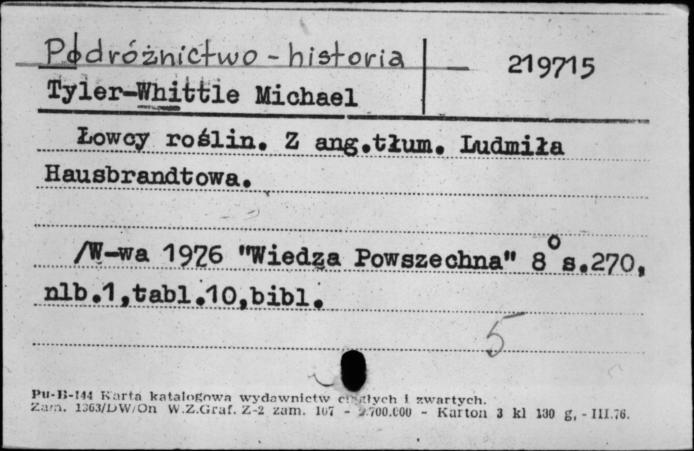 Podróżnictwo - historia
219715
Tyler-Whittle Michael
Łowcy roślin. Z ang.tłum. Ludmiła
Hausbrandtowa.
/W-wa 1976 "Wiedza Powszechna" 8° s.270,
nlb.1,tabl.10,bibl.
5
Pu-B-144 Karta katalogowa wydawnictw ciągłych i zwartych.
Zam. 1363/DW/On W.Z.Graf. Z-2 zam. 107 - 2.700.000 - Karton 3 kl 180 g, - III.76.